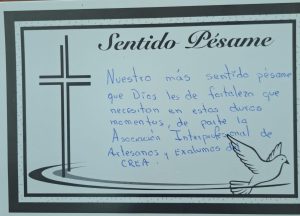 Sentido Pésame
Nuestro más sentido pésame
que Dios les de fortaleza que
necesitan en estos duros
momentos, de parte la
Asociación Interprofesional de
Artesanos y Exalumnos de
CREA.